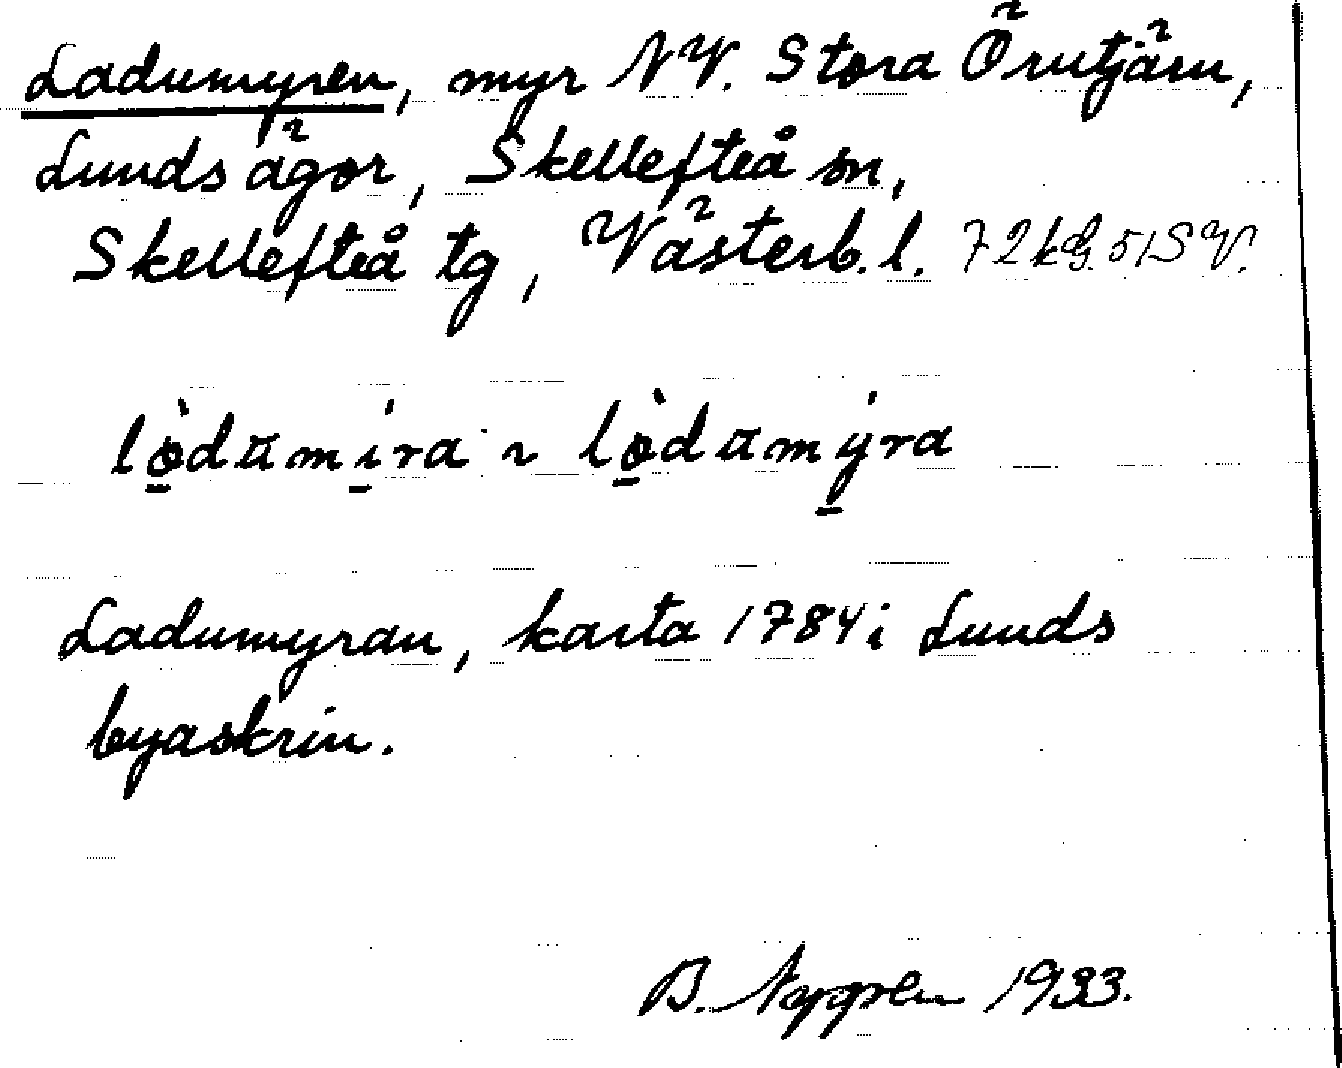 Ladumyren, myr NV. Stora Örutjärn,
Lunds ägor, Skellefteå sn,
Skellefteå tg, Västerb. l. 72kg.51SV.
lödumira ~ lödumyra
Ladumyran, karta 1784 i Lunds
byaskrin.
B. Nygren 1933.